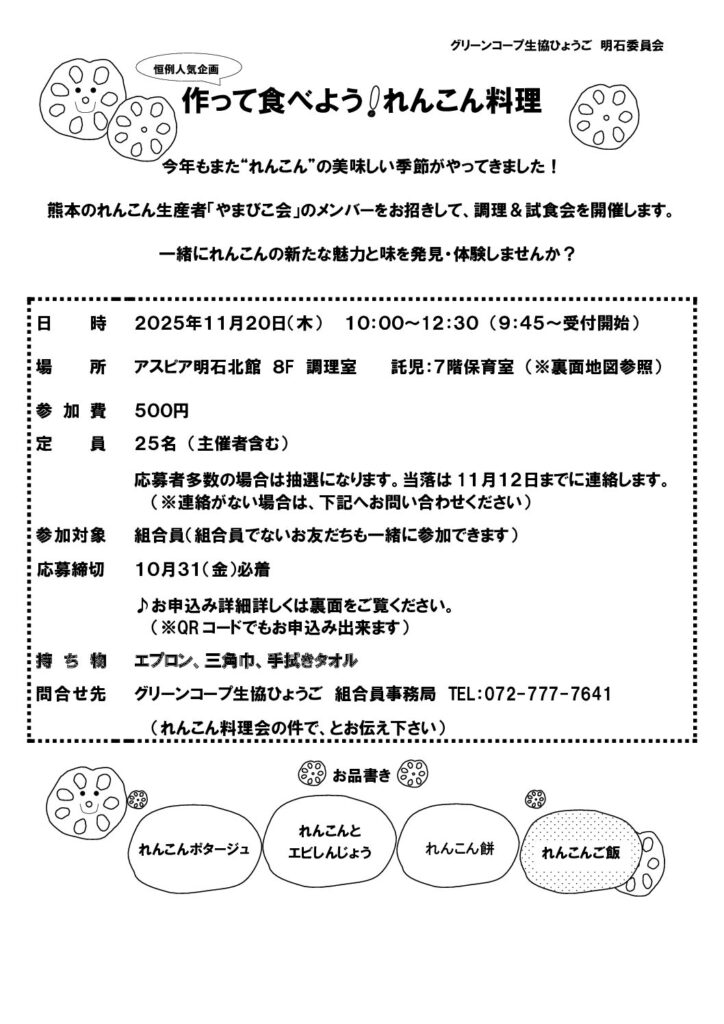 グリーンコープ生協ひょうご 明石委員会
恒例人気企画
作って食べよう!れんこん料理
今年もまた“れんこん”の美味しい季節がやってきました!
熊本のれんこん生産者「やまびこ会」のメンバーをお招きして、調理&試食会を開催します。
一緒にれんこんの新たな魅力と味を発見・体験しませんか?
日 時 2025年11月20日(木) 10:00~12:30 (9:45~受付開始)
場 所 アスピア明石北館 8F 調理室 託児:7階保育室 (※裏面地図参照)
参 加 費 500円
定 員 25名 (主催者含む)
応募者多数の場合は抽選になります。当落は11月12日までに連絡します。
(※連絡がない場合は、下記へお問い合わせください)
参加対象 組合員(組合員でないお友だちも一緒に参加できます)
応募締切 10月31(金)必着
♪お申込み詳細詳しくは裏面をご覧ください。
(※QRコードでもお申込み出来ます)
持 ち 物 エプロン、三角巾、手拭きタオル
問合せ先 グリーンコープ生協ひょうご 組合員事務局 TEL:072-777-7641
(れんこん料理会の件で、とお伝え下さい)
お品書き
れんこんポタージュ
れんこんと
エビしんじょう
れんこん餅
れんこんご飯